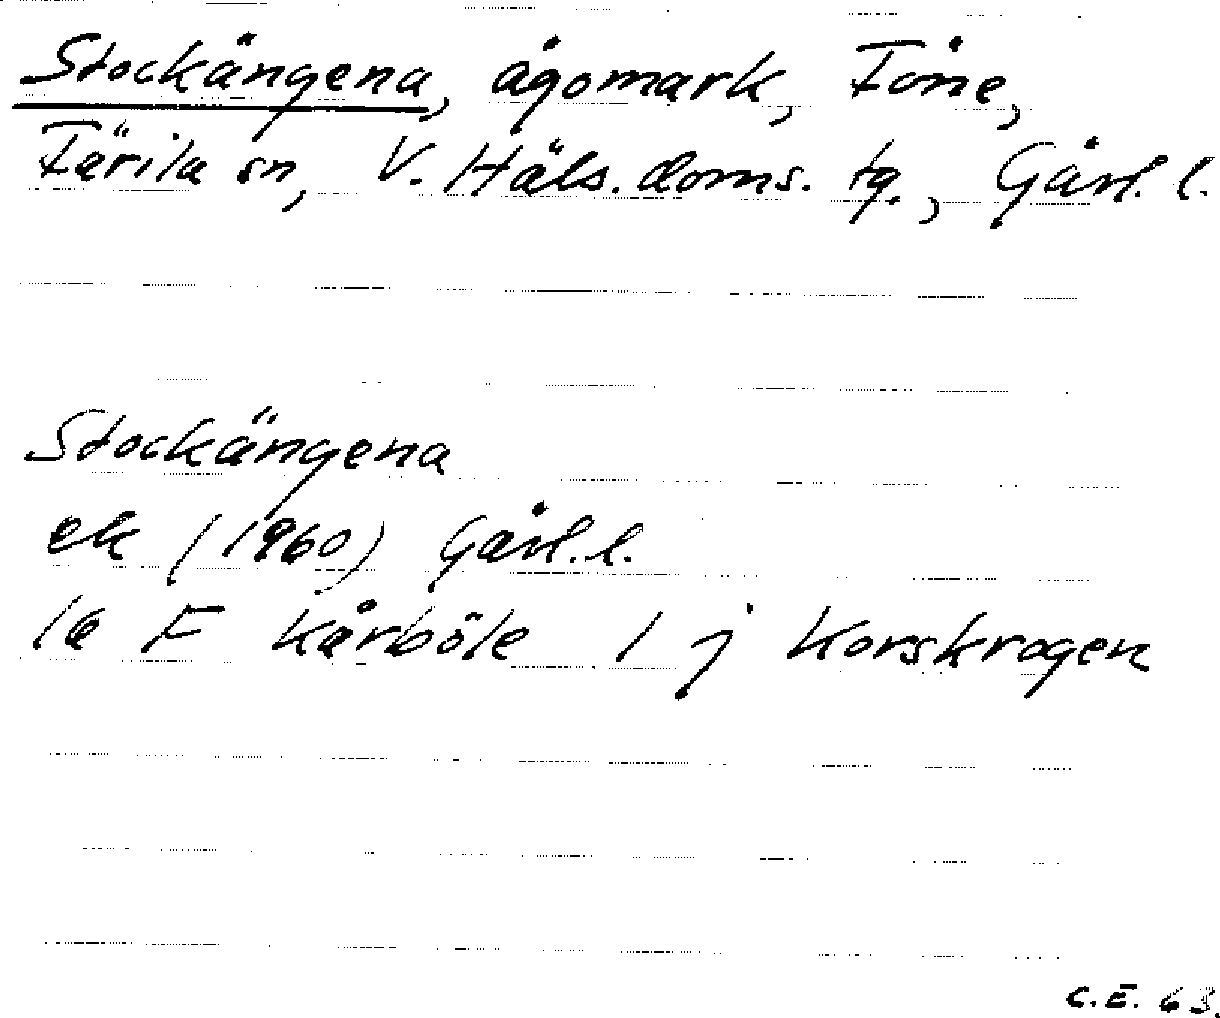 Stockängena, ägomark, Föne,
Färila sn, V. Häls. doms. tg., Gävl. l.
Stockängena
ek (1960) Gävl. l.
1a F Kårböle 1 j Korskrogen
C.E. 63.